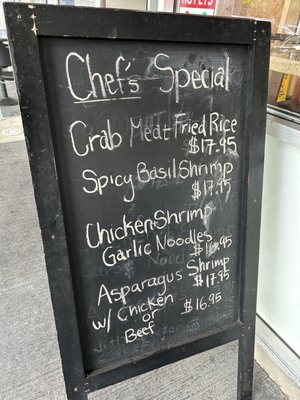 Chef's Special
Crab Meat Fried Rice
$17.95
Spicy Basil Shrimp
$17.95
Chicken Shrimp
Garlic Noodles
$16.95
Asparagus Shrimp
$17.95
w/ Chicken
or
Beef
$16.95